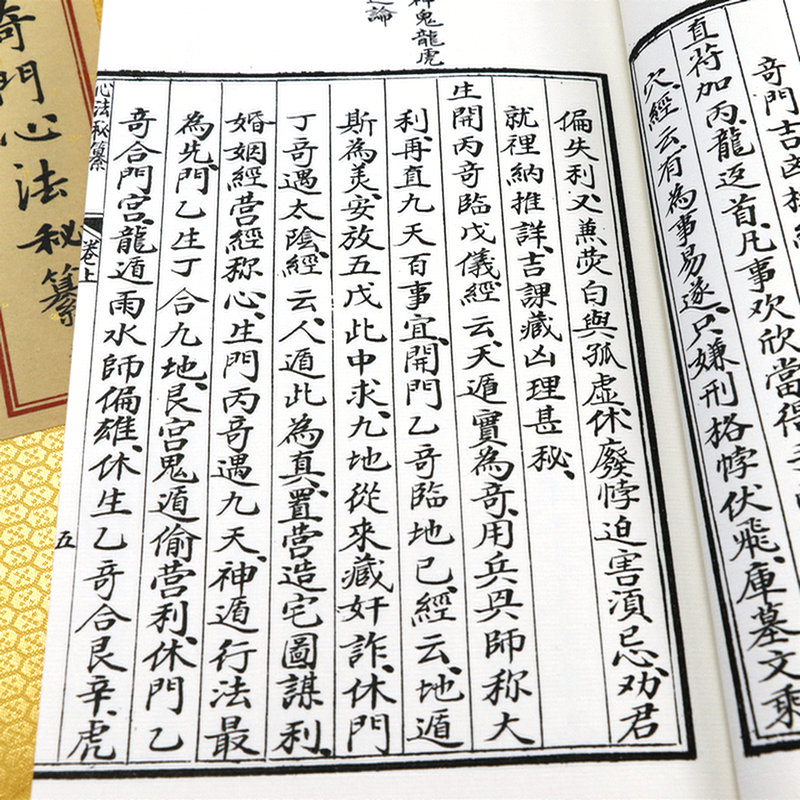 奇門吉凶
直符加丙、龍返首、凡事欢欣當得
穴、經云、有為事易遂、只嫌刑格悖伏飛、庫墓文乘
神鬼龍虎
之論
偏失利、又兼荧白與孤虛、休廢悖迫害須忌、劝君
就裡納推詳、吉課藏凶理甚秘、
生開丙奇臨戊儀、經云、天遁實為奇、用兵興師称大
利、再直九天百事宜、開門乙奇臨地己、經云、地遁
斯為美、安放五戊此中求、九地從來藏奸詐、休門
丁奇遇太陰、經云、人遁此為真、置营造宅圖謀利、
婚姻經营經称心、生門丙奇遇九天、神遁行法最
為先、門乙生丁合九地、艮宮鬼遁偷营利、休門乙
奇合門宮、龍遁雨水師偏雄、休生乙奇合艮辛、虎
心法秘纂
卷上
五
奇門心法秘纂